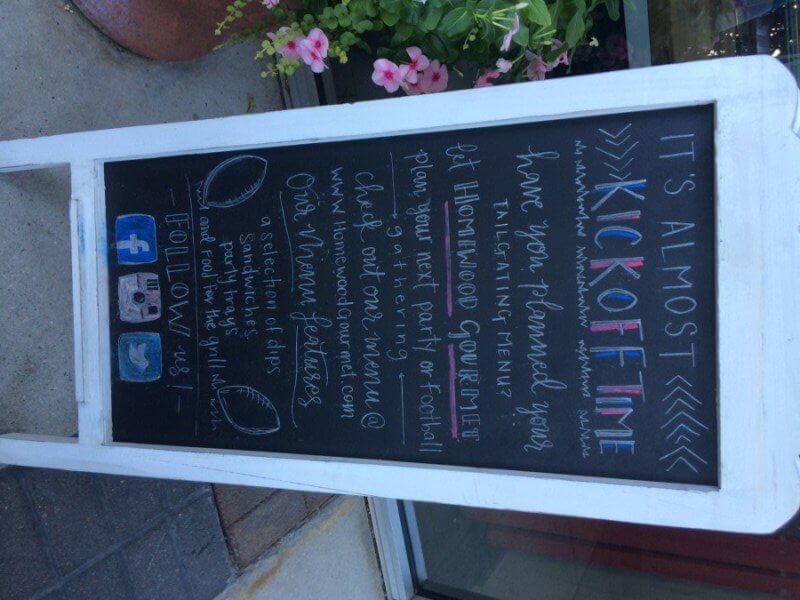 IT'S ALMOST <<<<<<
>>>>> KICKOFF TIME
have you planned your
TAILGATING MENU?
let HOMEWOOD GOURMET
plan your next party or football
gathering
check out our menu @
www.HomewoodGourmet.com
Our Menu features
a selection of dips
sandwiches
party trays
and food for the grill
- FOLLOW us! -
f